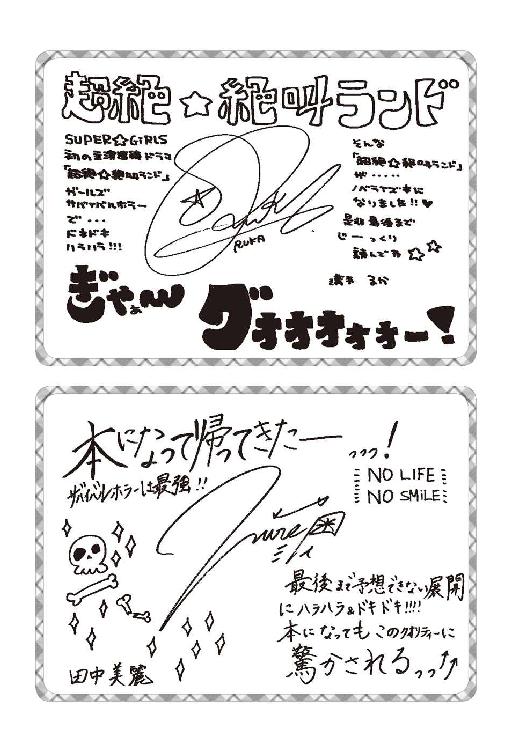 超絶☆絶叫ランド
SUPER☆GiRLS
初の主演連続ドラマ
「超絶☆絶叫ランド」
ガールズ
サバイバルホラー
で・・・
ドキドキ
ハラハラ!!!
そんな
「超絶☆絶叫ランド」
が・・・・・
ノベライズ本に
なりました!!♥
是非最後まで
じーっくり
読んでネ☆☆
RUKA
るか
ぎゃぁーん
グォオオオォォー!
本になって帰ってきたーーッッッ!
サバイバルホラーは最強!!
NO LIFE
NO SMiLE
最後まで予想できない展開
にハラハラ&ドキドキ!!!!
本になっても このクオリティーに
驚かされるっっ↑↑
田中美麗